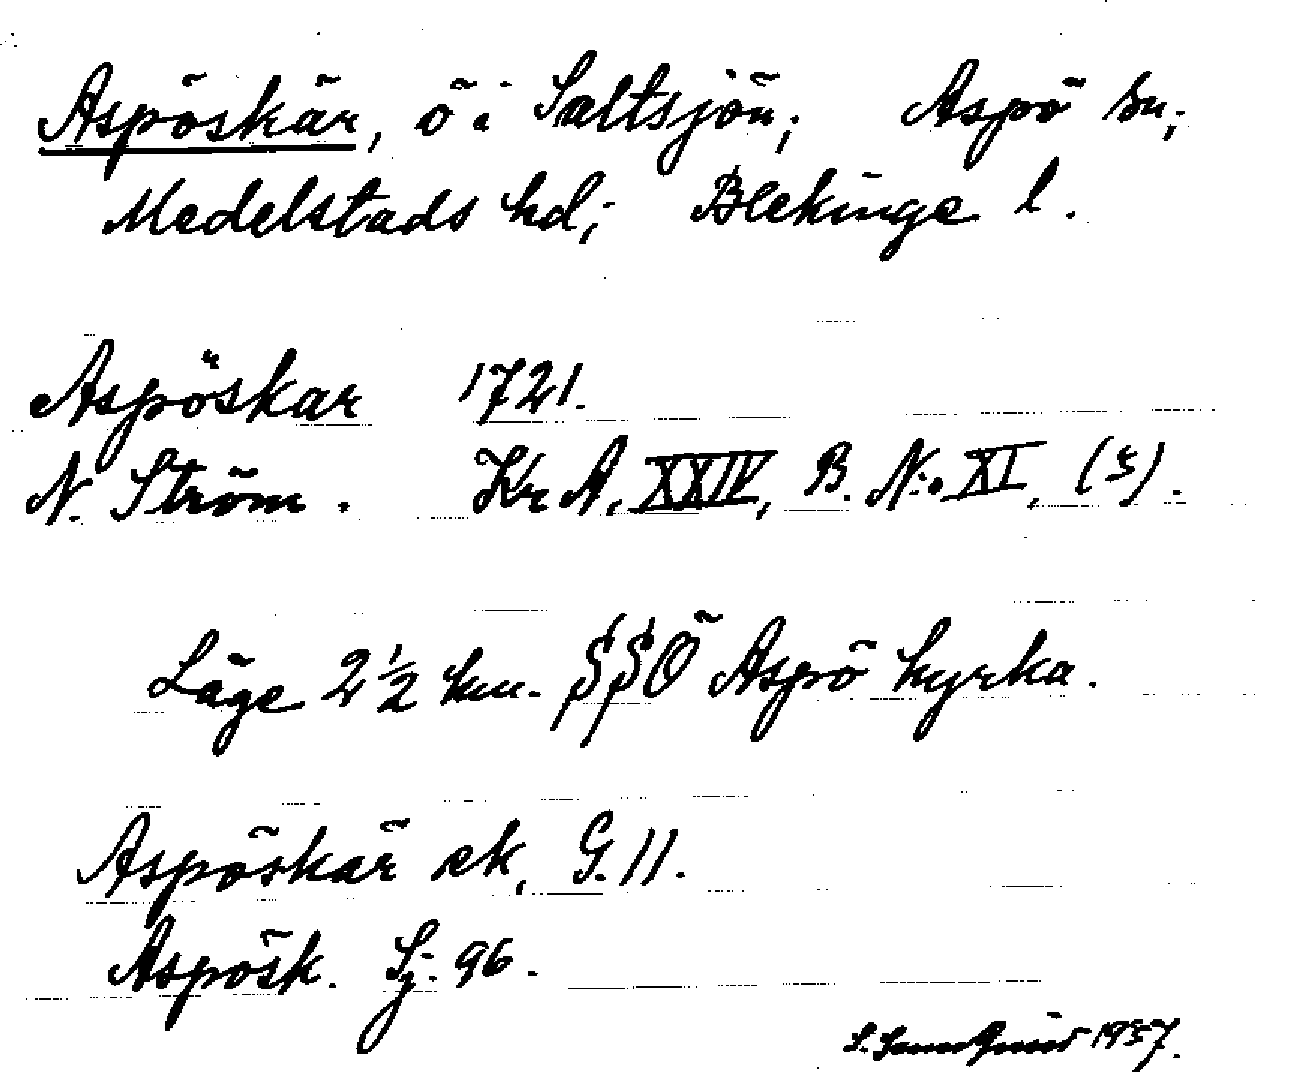 Aspöskär, ö i Saltsjön; Aspö sn;
Medelstads hd; Blekinge l.
Aspöskar 1721.
N. Ström. Kr A, XXIV, B. N:o XI, (ξ).
Läge 2½ km. SSÖ Aspö kyrka.
Aspöskär ek, G. 11.
Aspösk. Sj. 96.
1957.